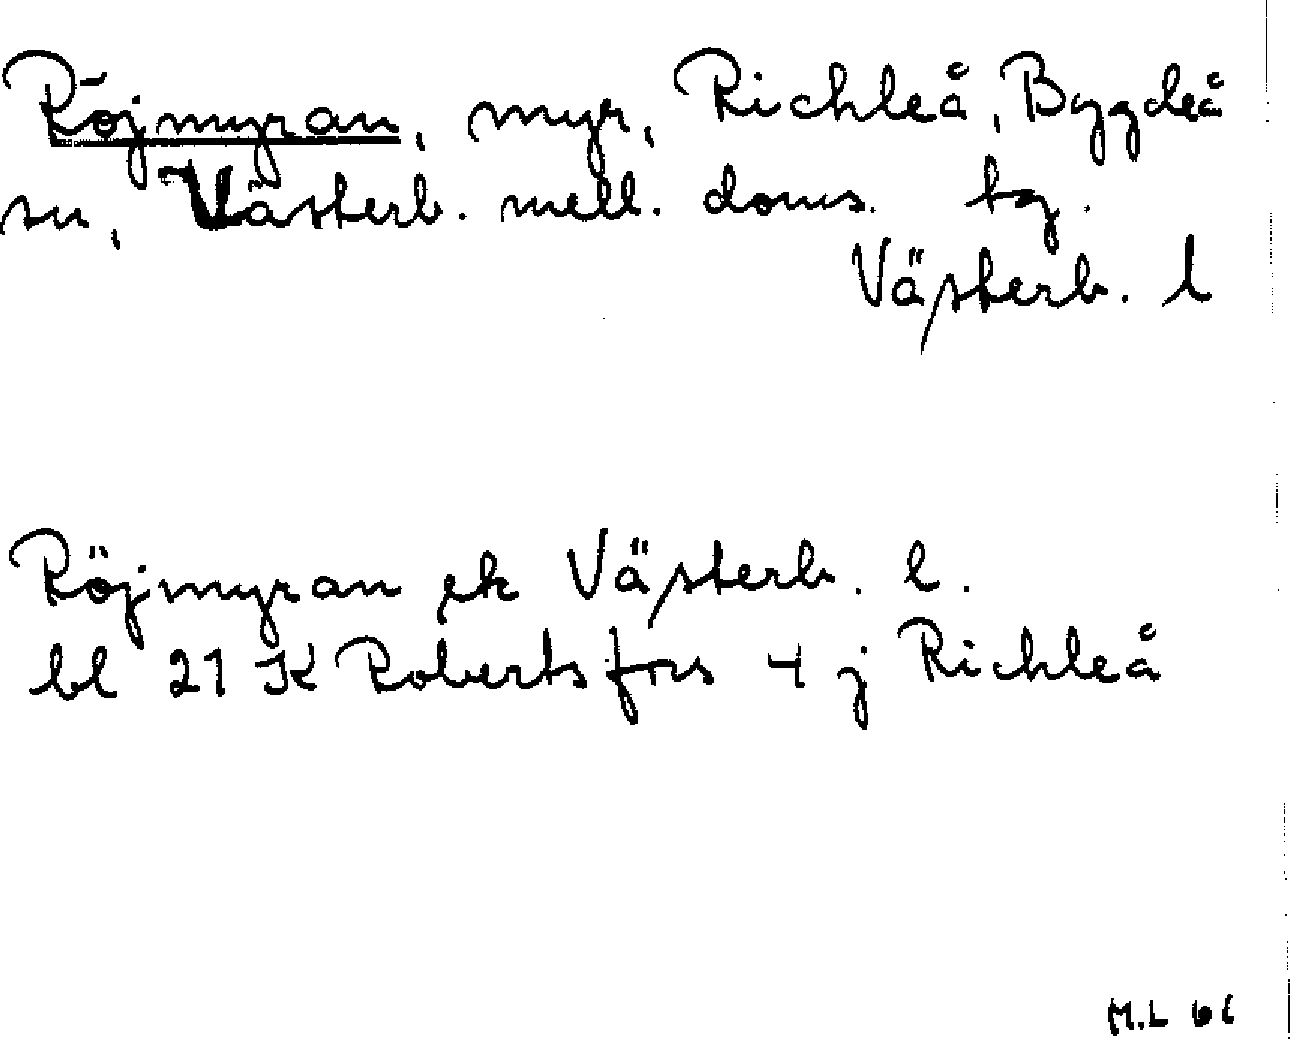 Röjmyran, myr, Richleå, Bygdeå
sn, Västerb. mell. doms. tg.
Västerb. l
Röjmyran ek Västerb. l.
bl 21 K Robertsfors 4 j Richleå
M.L 61